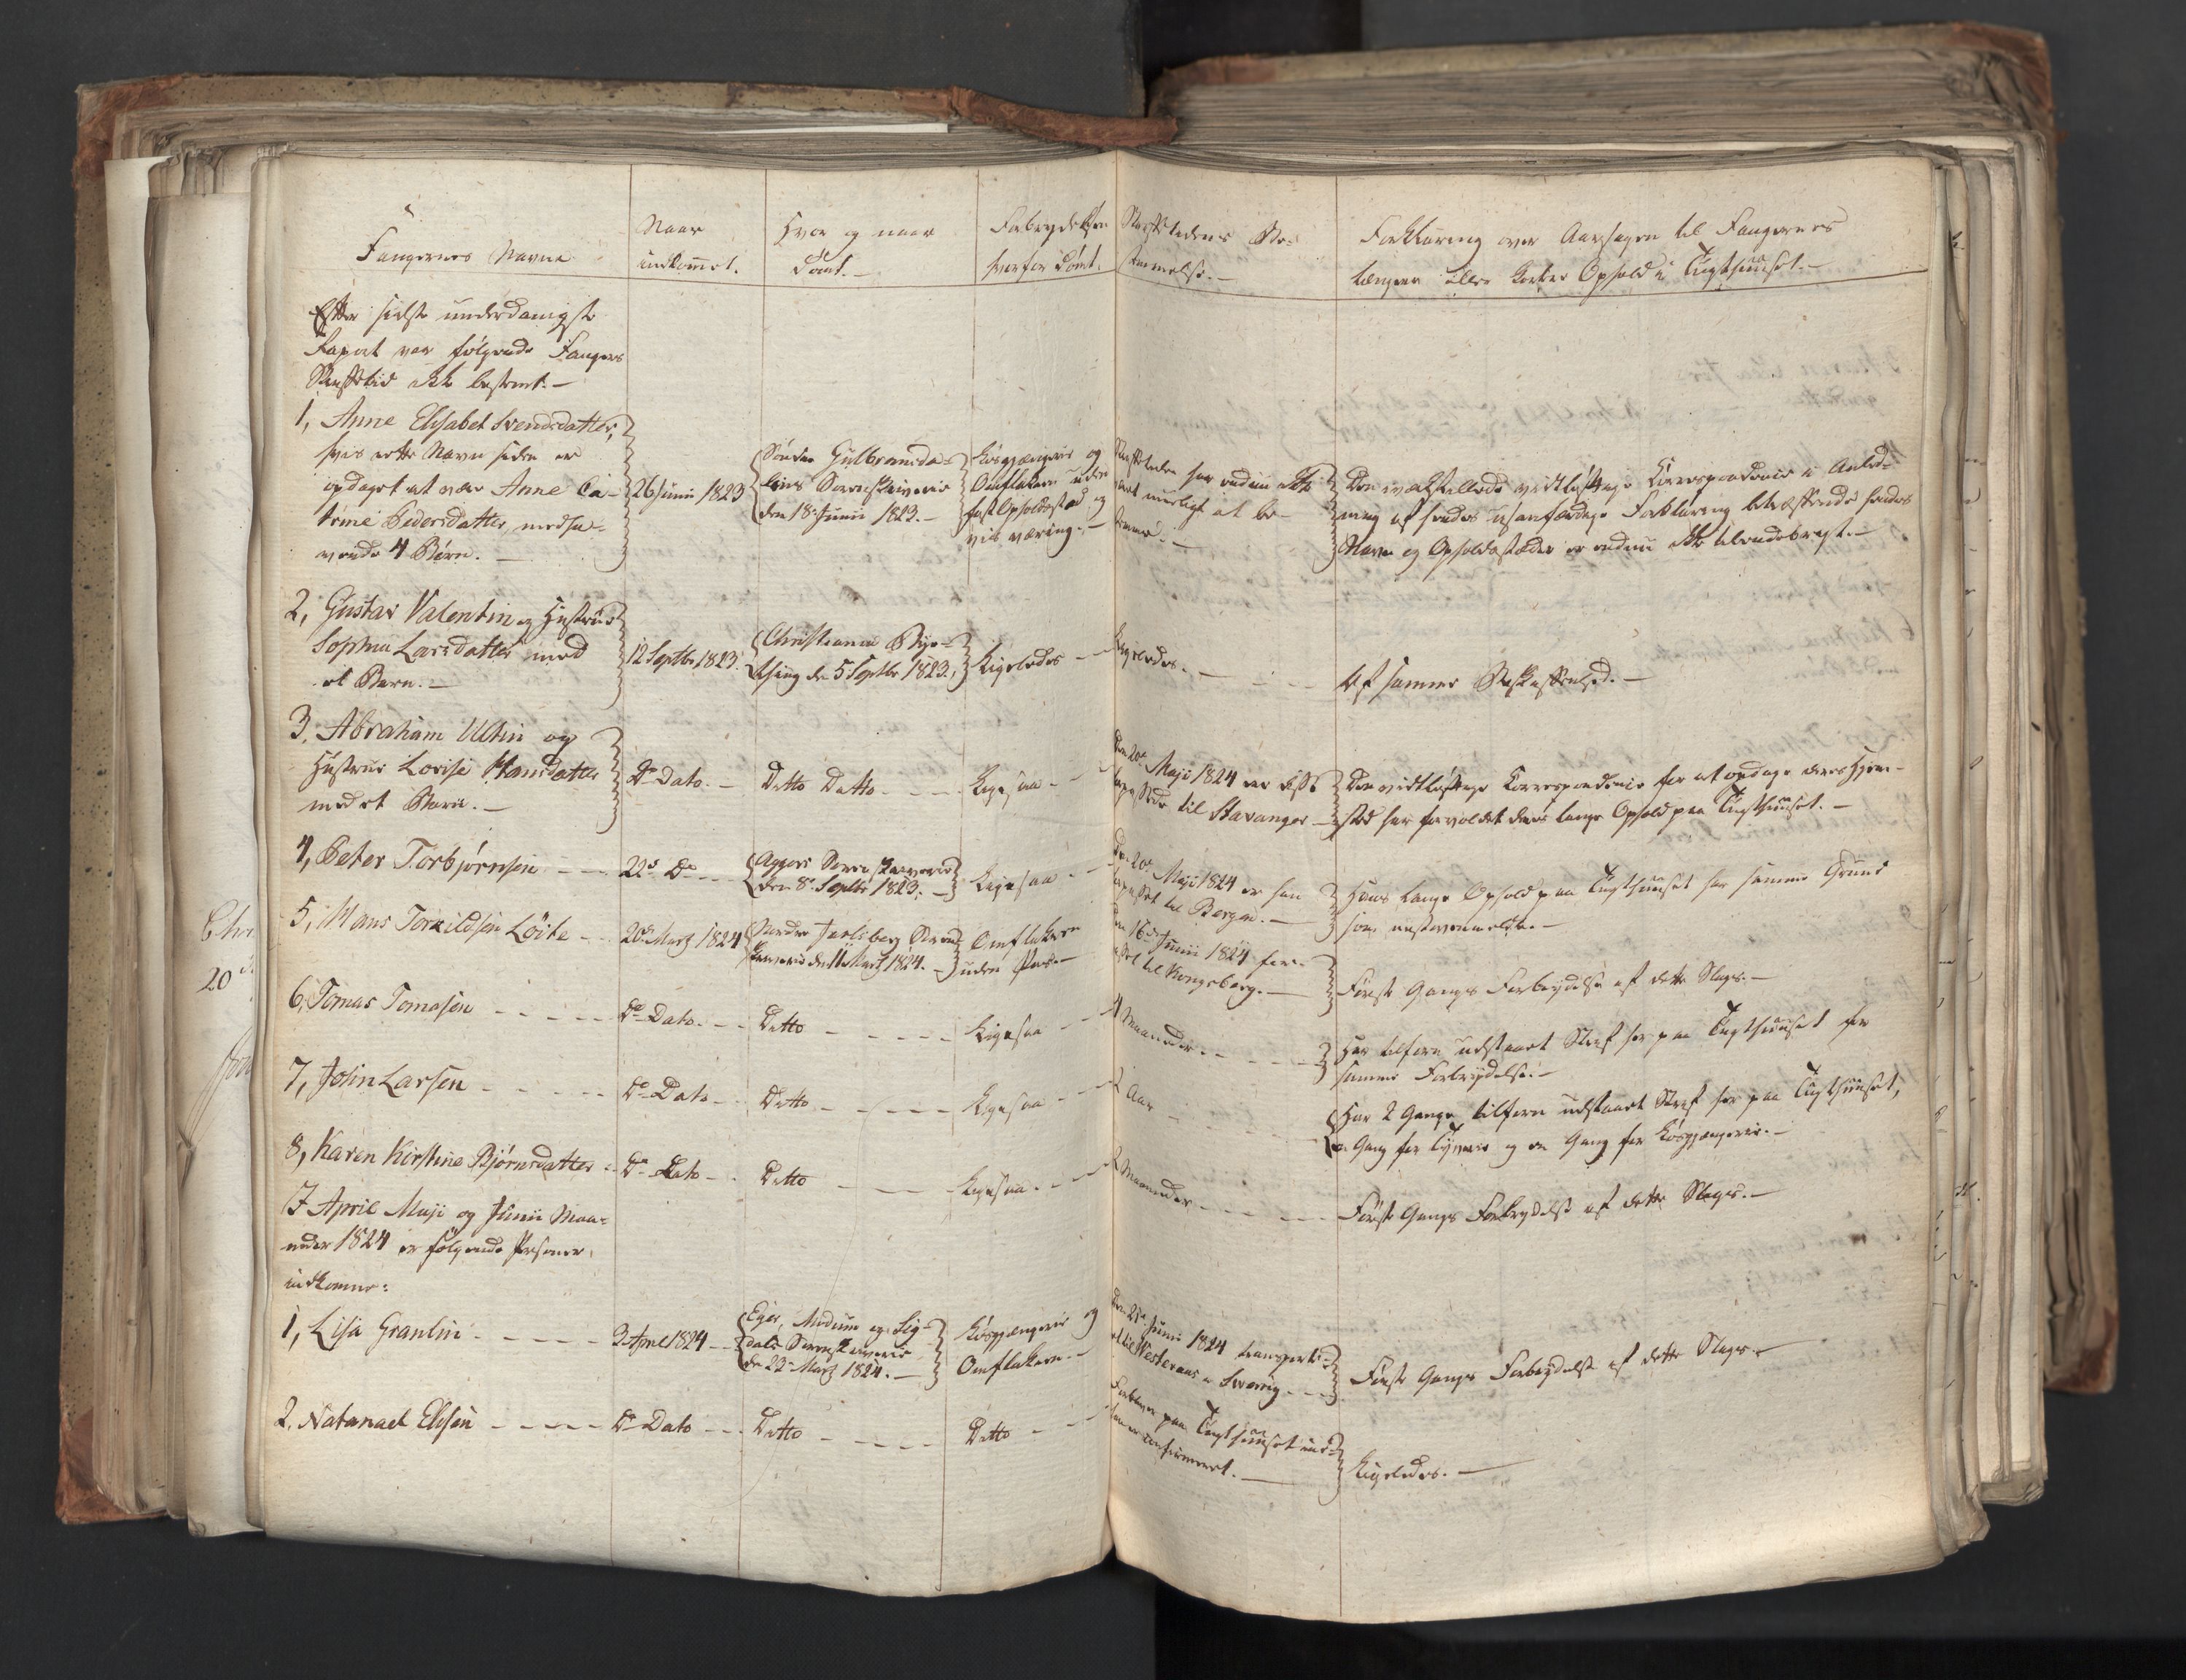 Fangernes Navne
Naar
indkomet.
Hvor og naar
dömt.
Forbrydelsen
hvorfor dömt.
Straffetidens Be-
stemmelse.
Forklaring over Aarsagen til Fangernes
længere eller kortere Ophold i Tugthuuset.
Efter sidste underdanigste
Raport var følgende Fangers
Straffetid ikke bestemt.
1, Anne Elisabet Svendsdatter,
hvis rette Navn siden er
opdaget at være Anne Ca-
trine Pedersdatter, medha-
vende 4 Børn.
26 Junii 1823
Söndre Gulbrandsda-
lens Sorenskriverie
den 18de Junii 1823.
Løsgjængerie og
Omflakken uden
fast Opholdssted og
vis næring.
Straffetiden har endnu ikke
været mueligt at be-
stemme.
Den iværkstillede vidtløftige Correspondence i Anled-
ning af hendes usandfærdige Forklaring betræffende hendes
Navn og Opholdssteder er endnu ikke tilendebragt.
2, Gustav Valentin og Hustrue
Sophia Larsdatter med
et Barn.
12 Septbr 1823.
Christiania Bye-
thing den 5 Septbr 1823.
Ligeledes
Ligeledes.
Af samme Beskaffenhed.
3, Abraham Ultin og
Hustrue Lovise Hansdatter
med et Barn.
Do Dato.
Ditto Datto
Ligesaa
Den 20de Maji 1824 ere disse
til Stavanger
Den vidtløftige Correspondence for at opdage deres Hjem-
sted har forvoldet deres lange Ophold paa Tugthuuset.
4, Peter Torbjørnsen
22de Do
Aggers Sorenskriverie
den 8de Septbr 1823.
Ligesaa
Den 20de Maji 1824 er han
til Bergen.
Hans lange Ophold paa Tugthuuset har samme Grund
som nestovenmeldte.
5, Hans Torkildsen Löite
20de Martz 1824
Nordre Jarlsberg Soren-
skriverie den 11 Martz 1824.
Omflakken
uden Pas.
Den 16de Junii 1824
til Kongsberg.
Første Gangs Forbrydelse af dette Slags.
6, Tomas Tomasen
Do Dato.
Ditto
Ligesaa
4 Maaneder
Har tilforn udstaaet Straf her paa Tugthuuset for
samme Forbrydelse.
7, John Larsen
Do Dato
Ditto
Ligesaa
2 Aar
Har 2 Gange tilforn udstaaet Straf her paa Tugthuuset,
en Gang for Tyverie og en Gang for Løsgjængerie.
8, Karen Kirstine Bjørnsdatter
Do Dato
Ditto
Ligesaa
2 Maaneder
Første Gangs Forbrydelse af dette Slags.
I April Maji og Junii Maa-
neder 1824 er følgende Personer
indkomne:
1, Lisa Granlin
2 April 1824
Eger, Modum og Sig-
dals Sorenskriverie
den 22de Martz 1824.
Løsgjængerie og
Omflakken
Den 25de Junii 1824 transporte-
ret til Westeraas i Sverrig
Første Gangs Forbrydelse af dette Slags.
2. Natanael Elisen
Do Dato
Ditto
Ditto
Forbliver paa Tugthuuset indtil
han er confirmeret.
Ligeledes.
Chri
20de